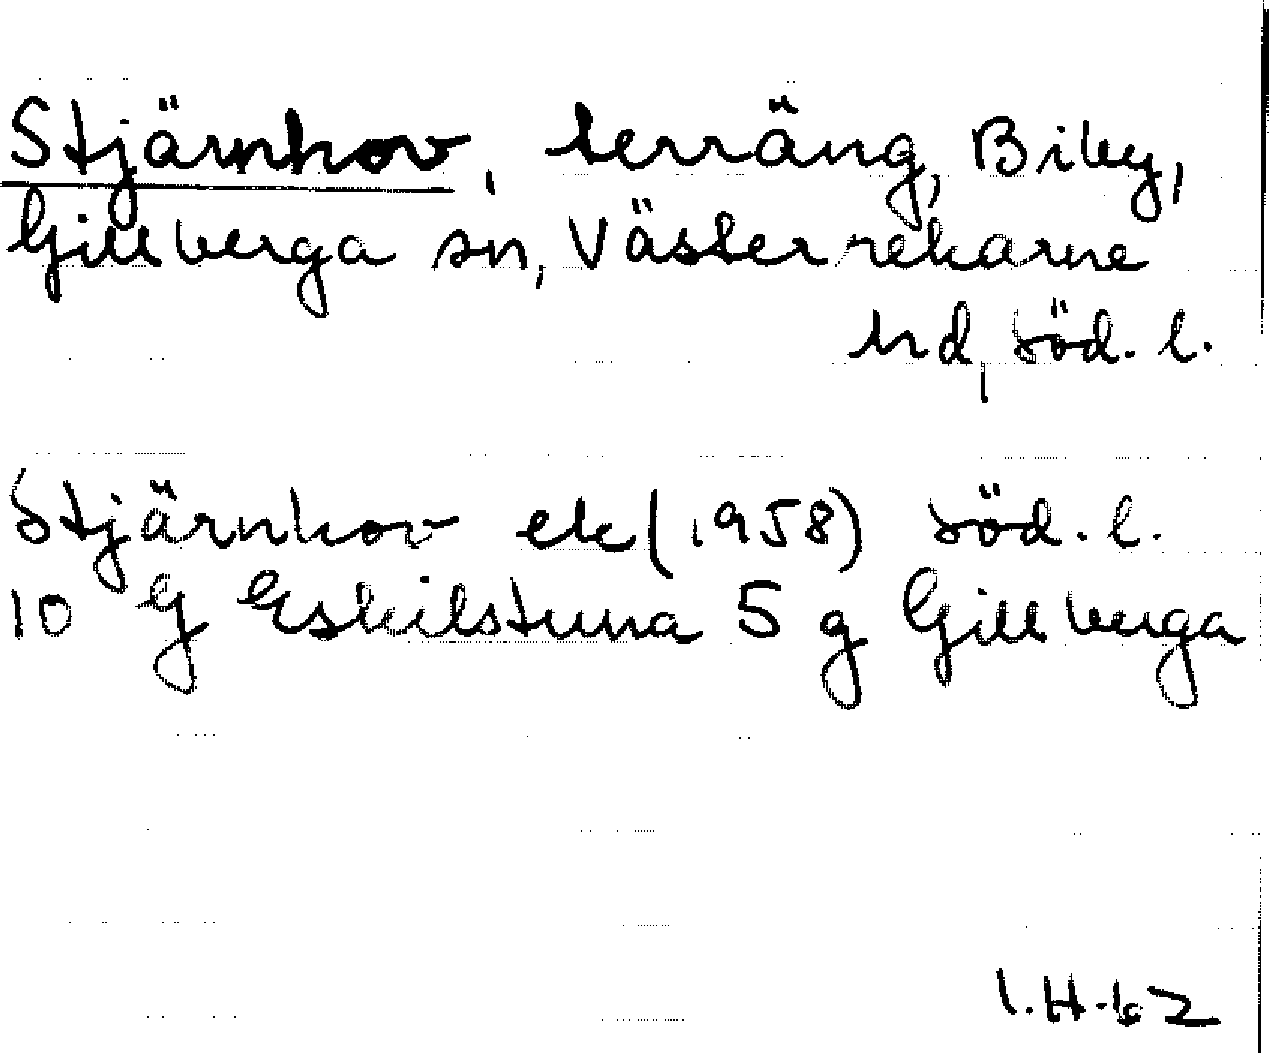 Stjärnhov, terräng, Biby,
Gillberga sn, Västerrekarne
hd, Söd. l.
Stjärnhov ek (1958) Söd. l.
10 G Eskilstuna 5 g Gillberga
I.H-62